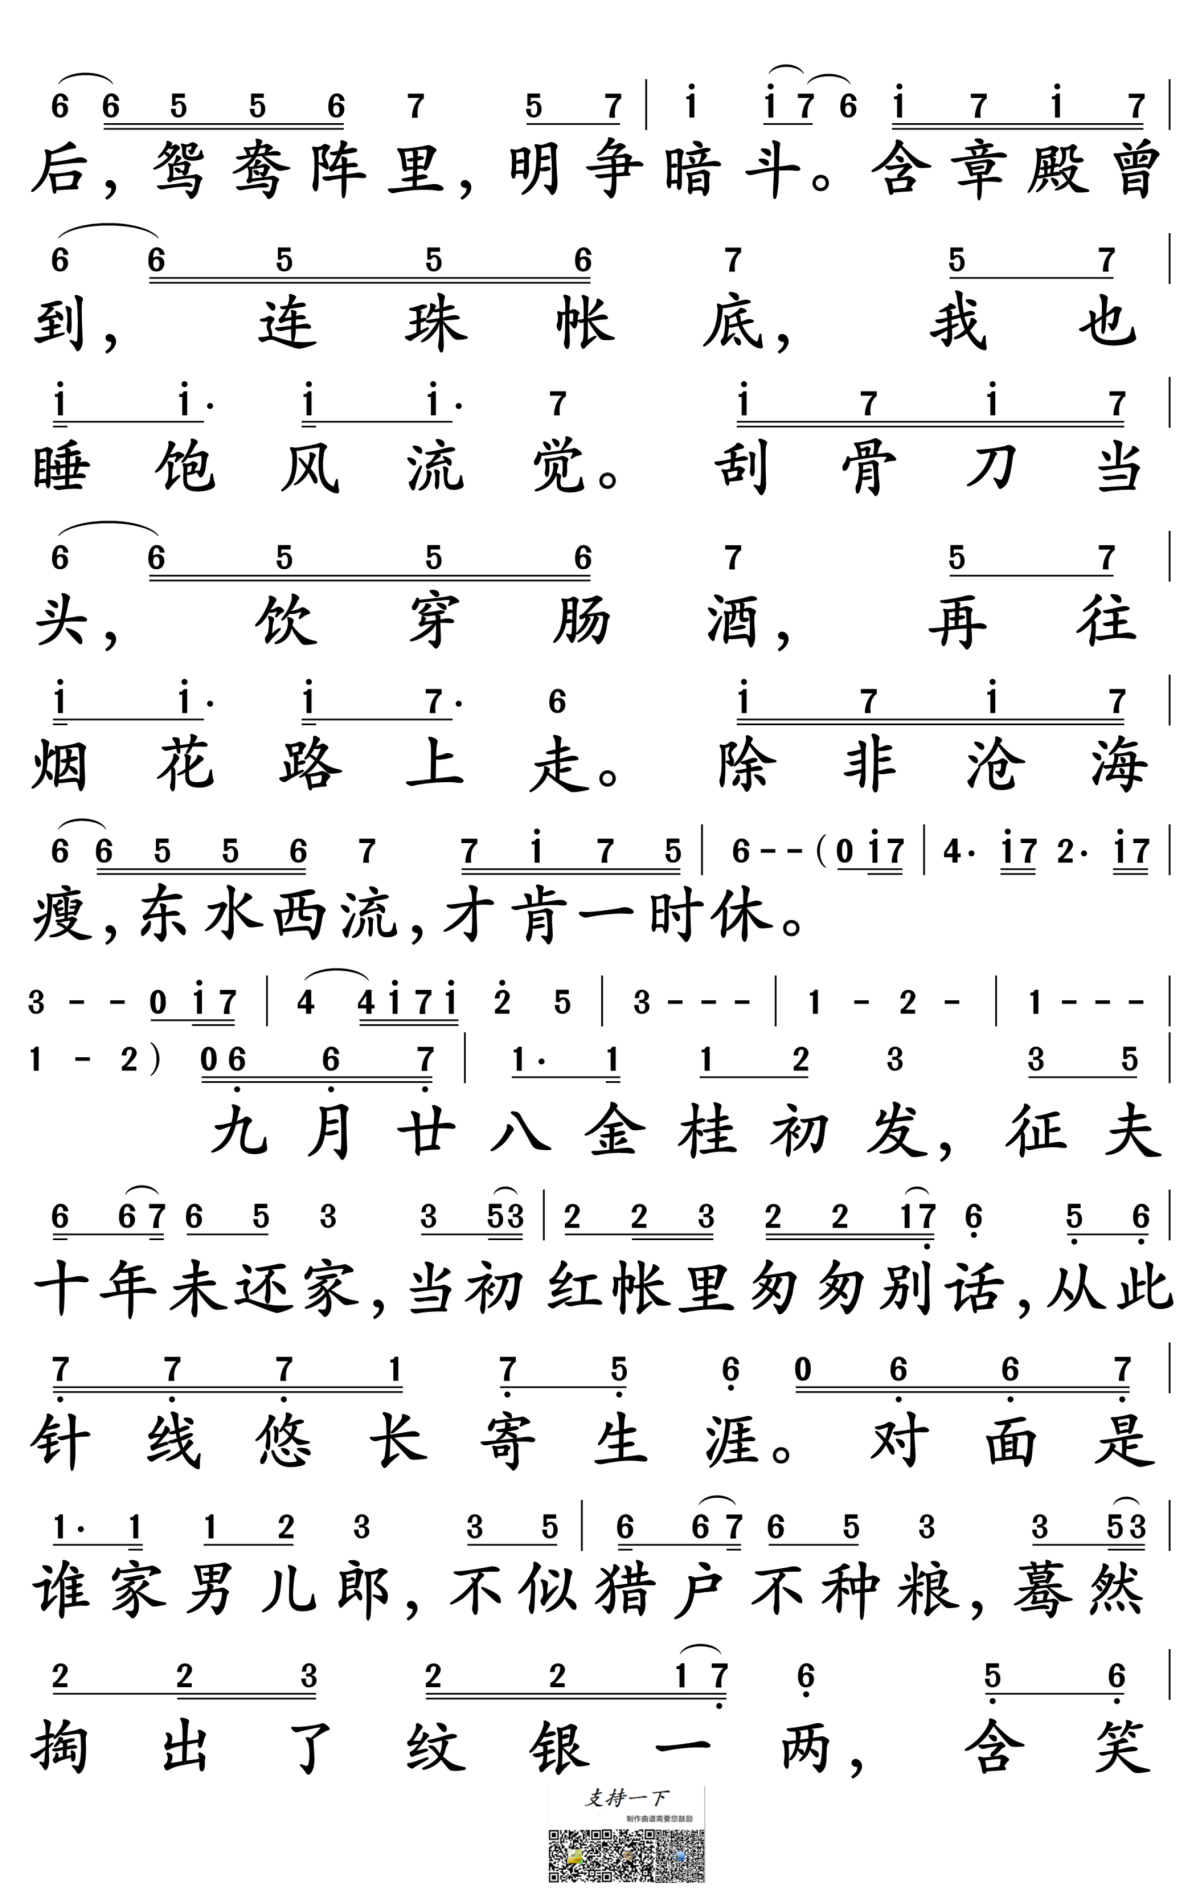 6 6 5 5 6 7 5 7 | i i 7 6 i 7 i 7 |
后，鸳鸯阵里，明争暗斗。含章殿曾
6 6 5 5 6 7 5 7 |
到，连珠帐底，我也
i i· i i· 7 i 7 i 7 |
睡饱风流觉。刮骨刀当
6 6 5 5 6 7 5 7 |
头，饮穿肠酒，再往
i i· i 7· 6 i 7 i 7 |
烟花路上走。除非沧海
6 6 5 5 6 7 7 i 7 5 | 6 - - (0 i 7 | 4· i 7 2· i 7 |
瘦，东水西流，才肯一时休。
3 - - 0 i 7 | 4 4 i 7 i 2 5 | 3 - - - | 1 - 2 - | 1 - - - |
1 - 2 ) 0 6 6 7 | 1· 1 1 2 3 3 5 |
九月廿八金桂初发，征夫
6 6 7 6 5 3 3 5 3 | 2 2 3 2 2 1 7 6 5 6 |
十年未还家，当初红帐里匆匆别话，从此
7 7 7 1 7 5 6 0 6 6 7 |
针线悠长寄生涯。对面是
1· 1 1 2 3 3 5 | 6 6 7 6 5 3 3 5 3 |
谁家男儿郎，不似猎户不种粮，蓦然
2 2 3 2 2 1 7 6 5 6 |
掏出了纹银一两，含笑
支持一下
制作曲谱需要您鼓励